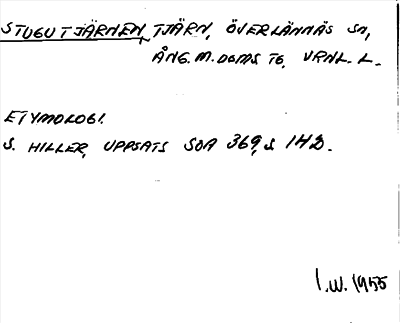 STUGUTJÄRNEN, TJÄRN, ÖVERLÄNNÄS SN,
ÅNG. M. DOMS TG. VRNL. L.
ETYMOLOGI.
S. HILLER, UPPSATS SOA 369, S. 142.
I.W. 1955